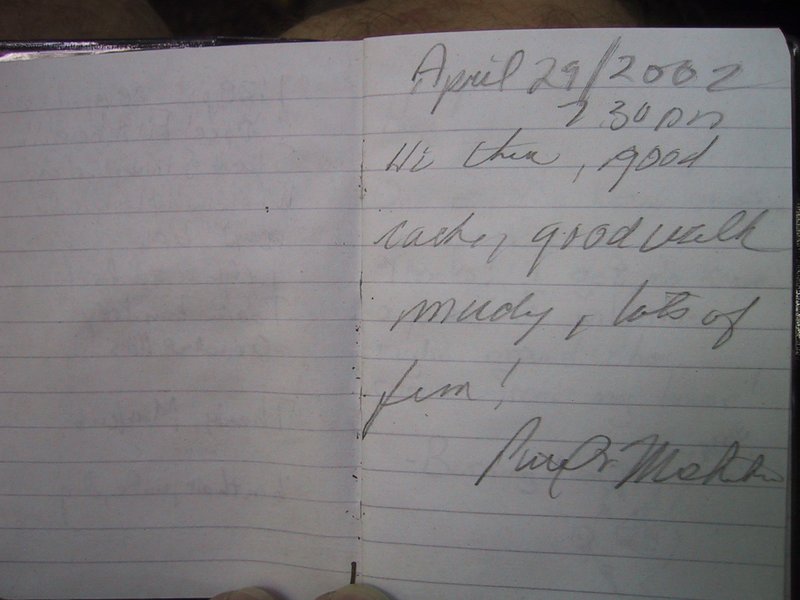 April 29/2002
7 30 pm
Hi there, good
cache, good walk
mudy, lots of
fun!